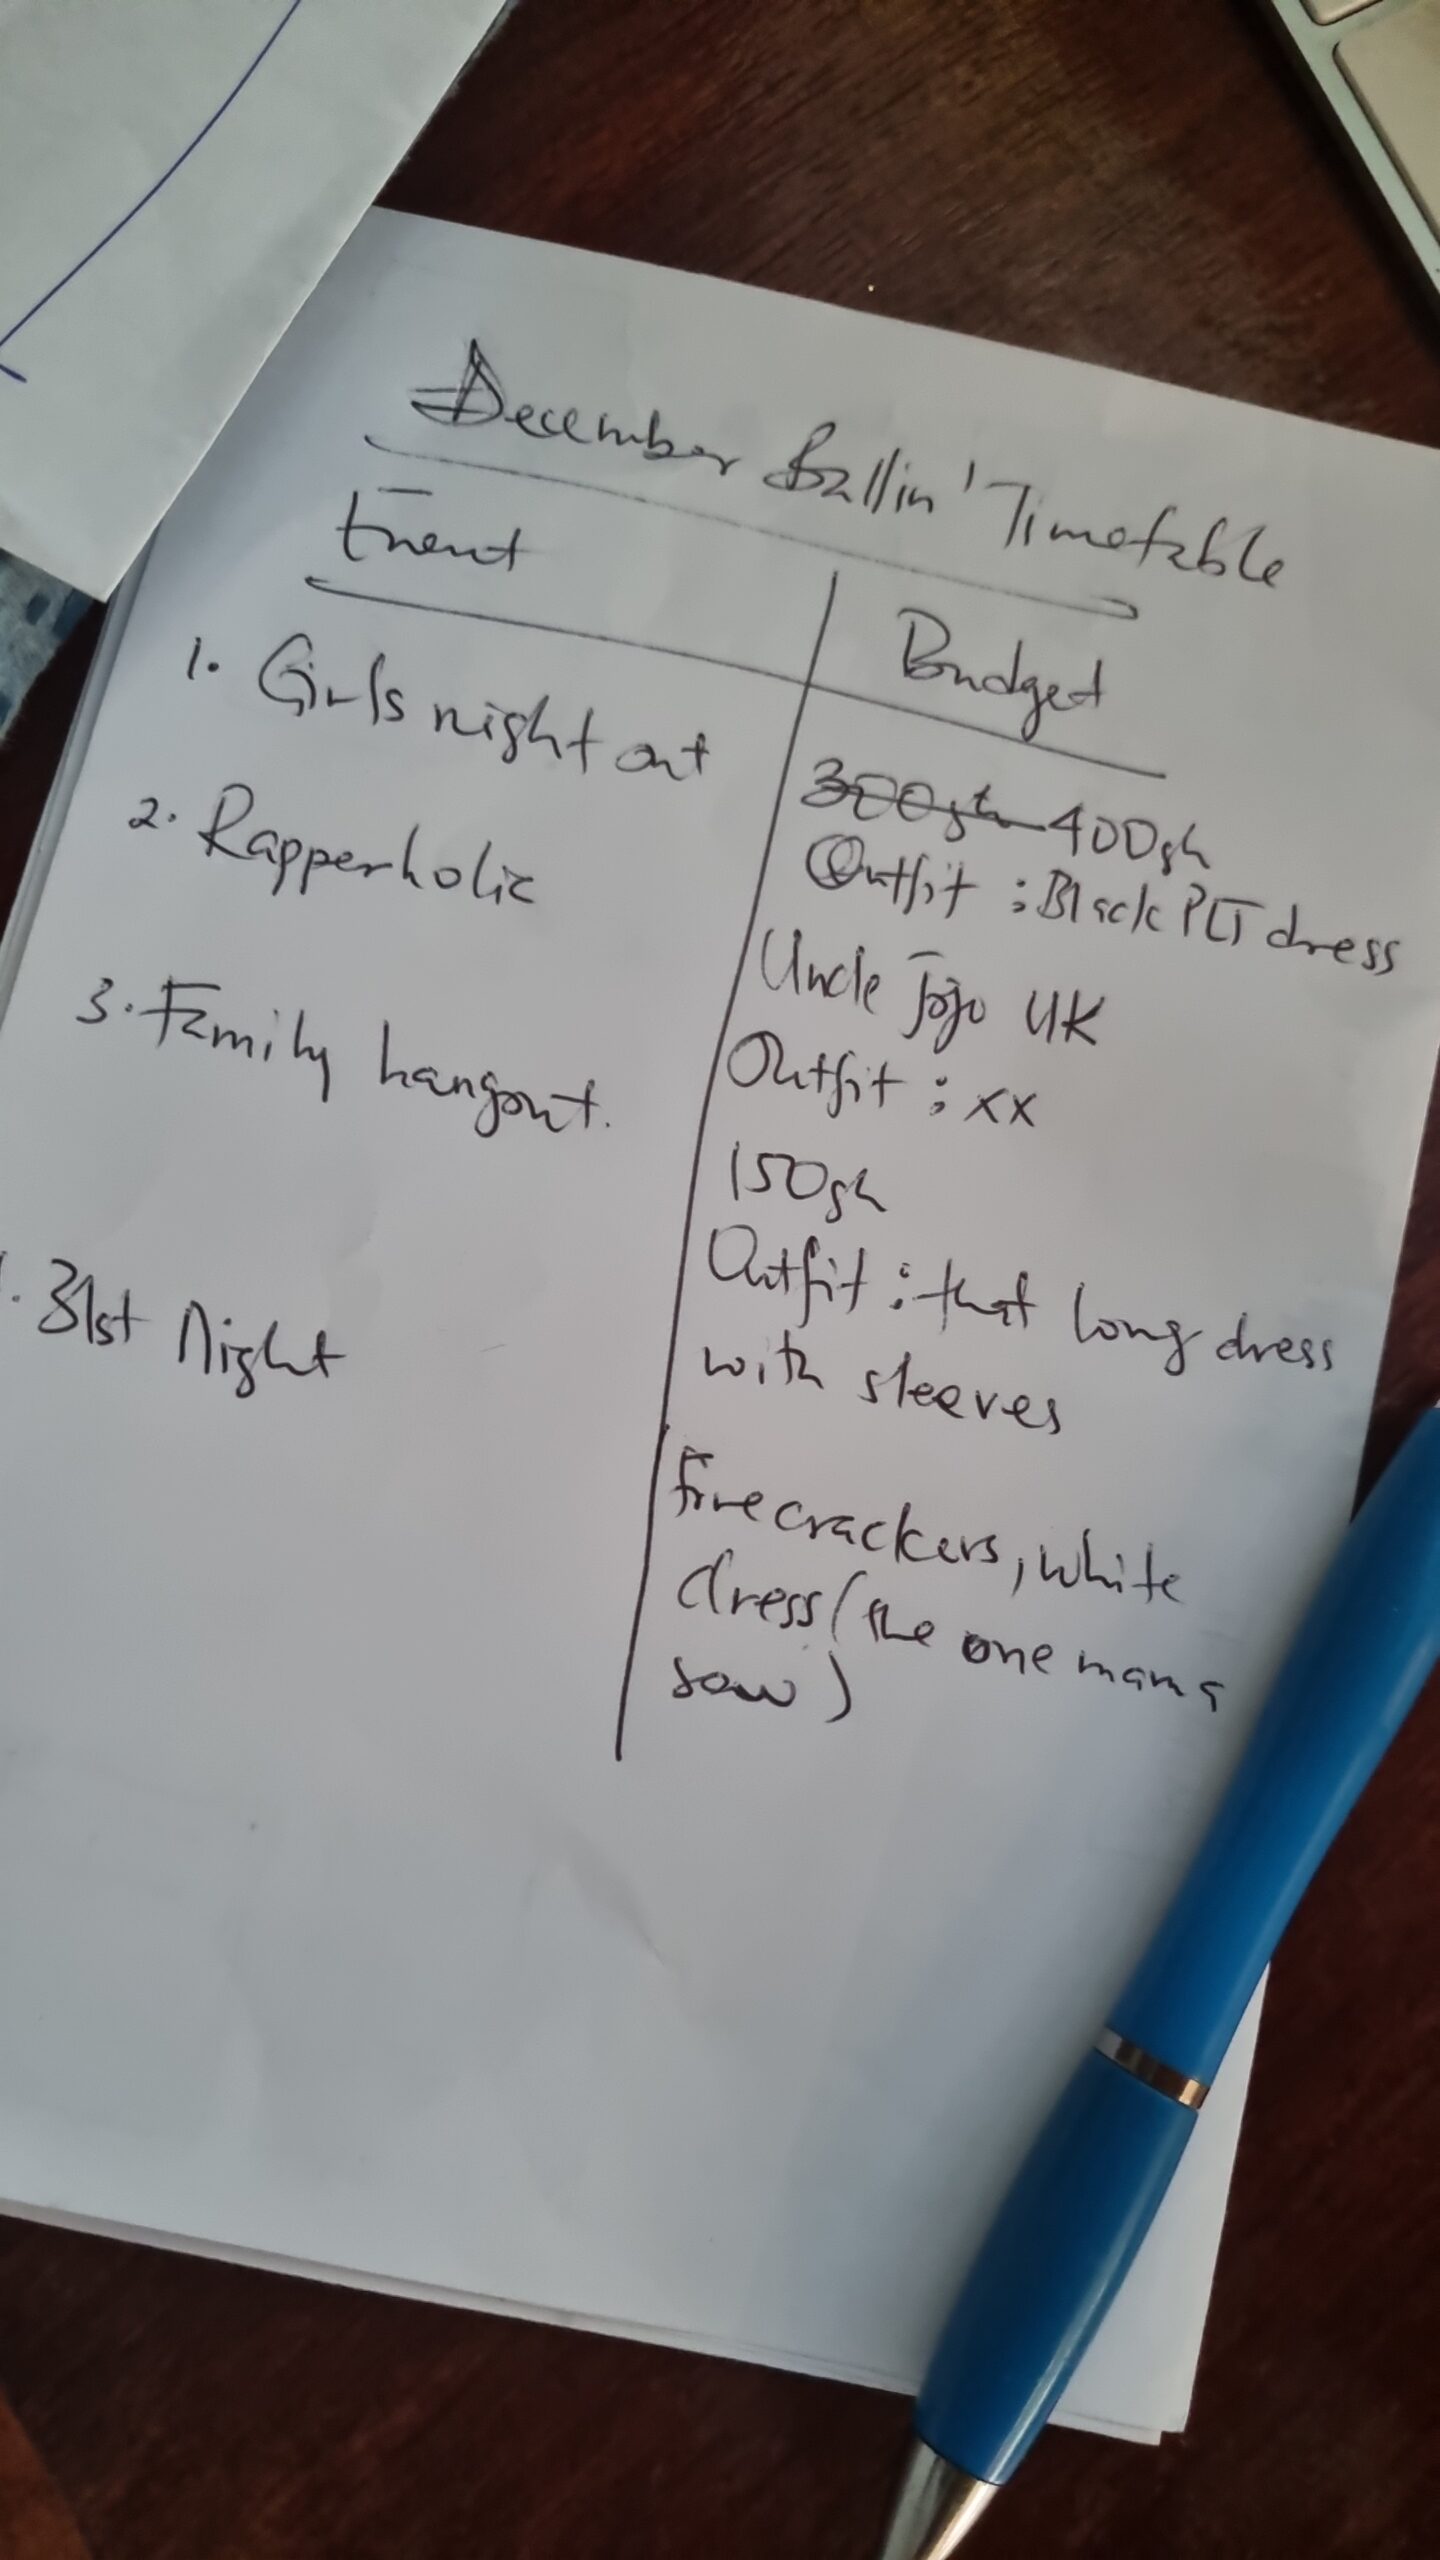 December Ballin' Timetable
Event
Budget
1. Girls night out
300gh 400gh
Outfit : Black PLT dress
2. Rapperholic
Uncle Jojo UK
Outfit : xx
3. Family hangout.
150gh
Outfit : that long dress
with sleeves
. 31st Night
Firecrackers, white
dress (the one mama
saw)